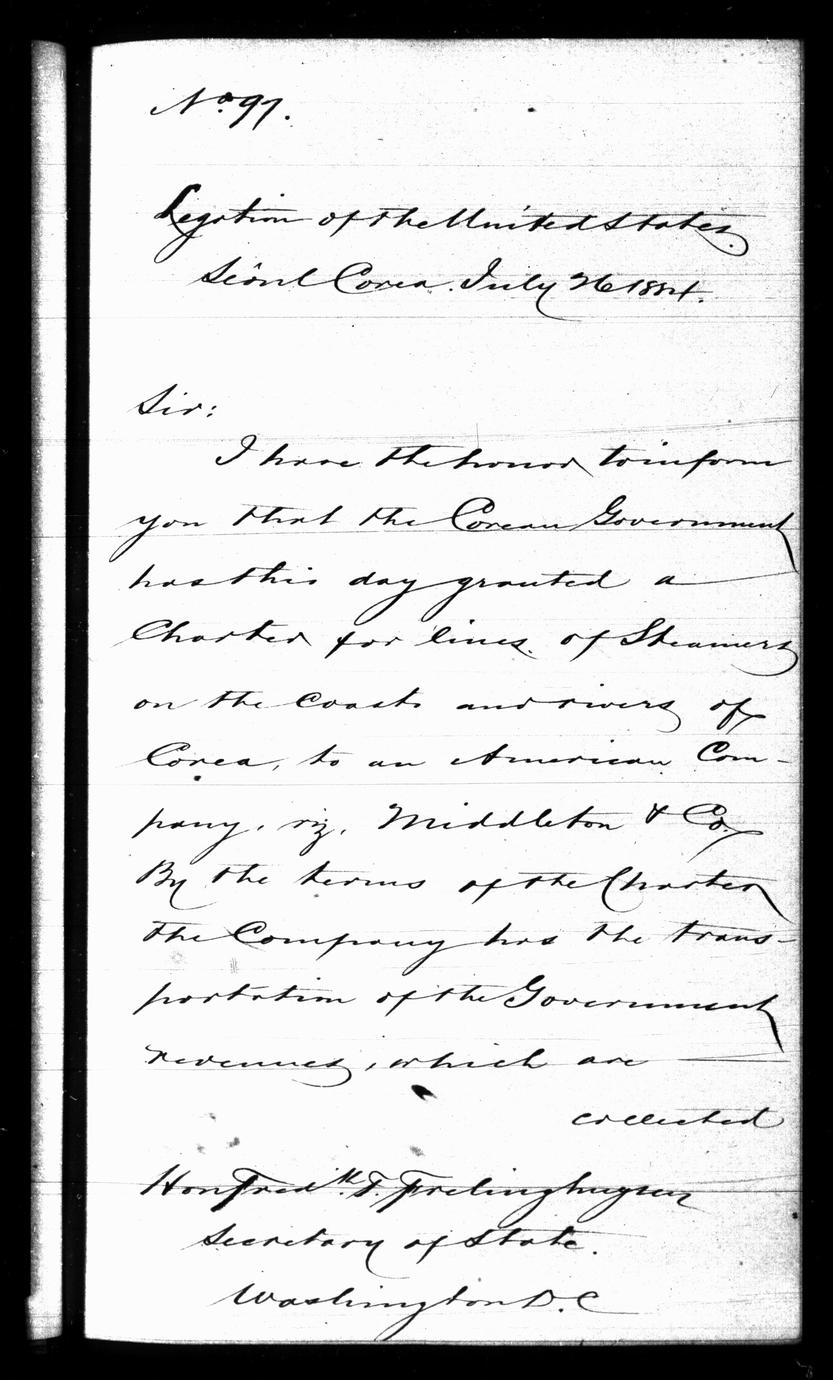 No. 97.
Legation of the United States.
Séoul Corea. July 26 1884.
Sir:
I have the honor to inform
you that the Corean Government
has this day granted a
Charter for lines of Steamers
on the coasts and rivers of
Corea, to an American Com-
pany, viz, Middleton & Co.
By the terms of the Charter
the Company has the trans-
portation of the Government
revenues, which are
collected
Hon Fredk. T. Frelinghuysen
Secretary of State.
Washington D.C